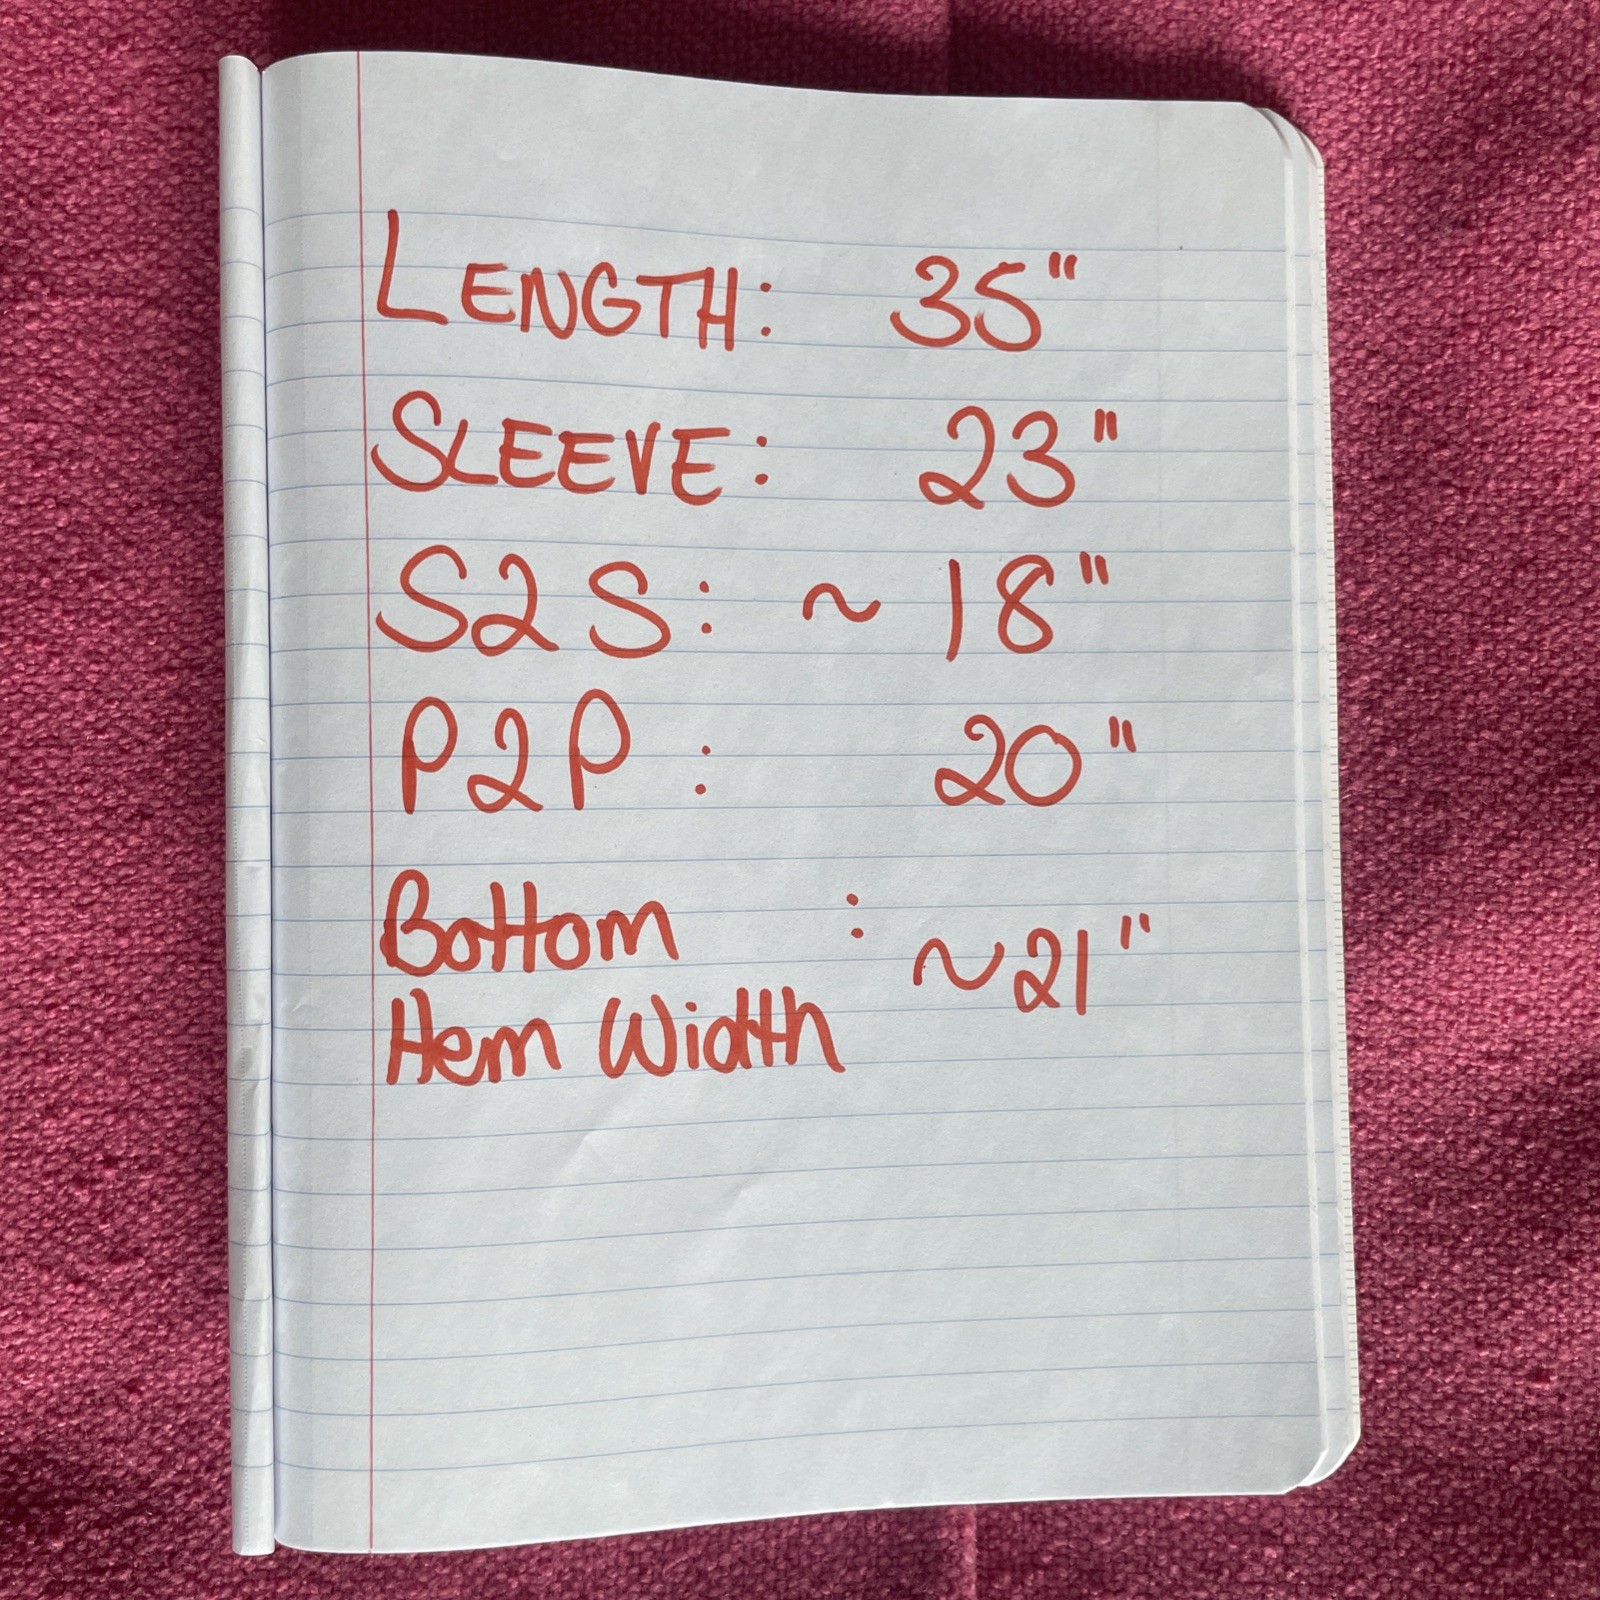 LENGTH: 35"
SLEEVE: 23"
S2S: ~ 18"
P2P: 20"
Bottom : ~21"
Hem Width